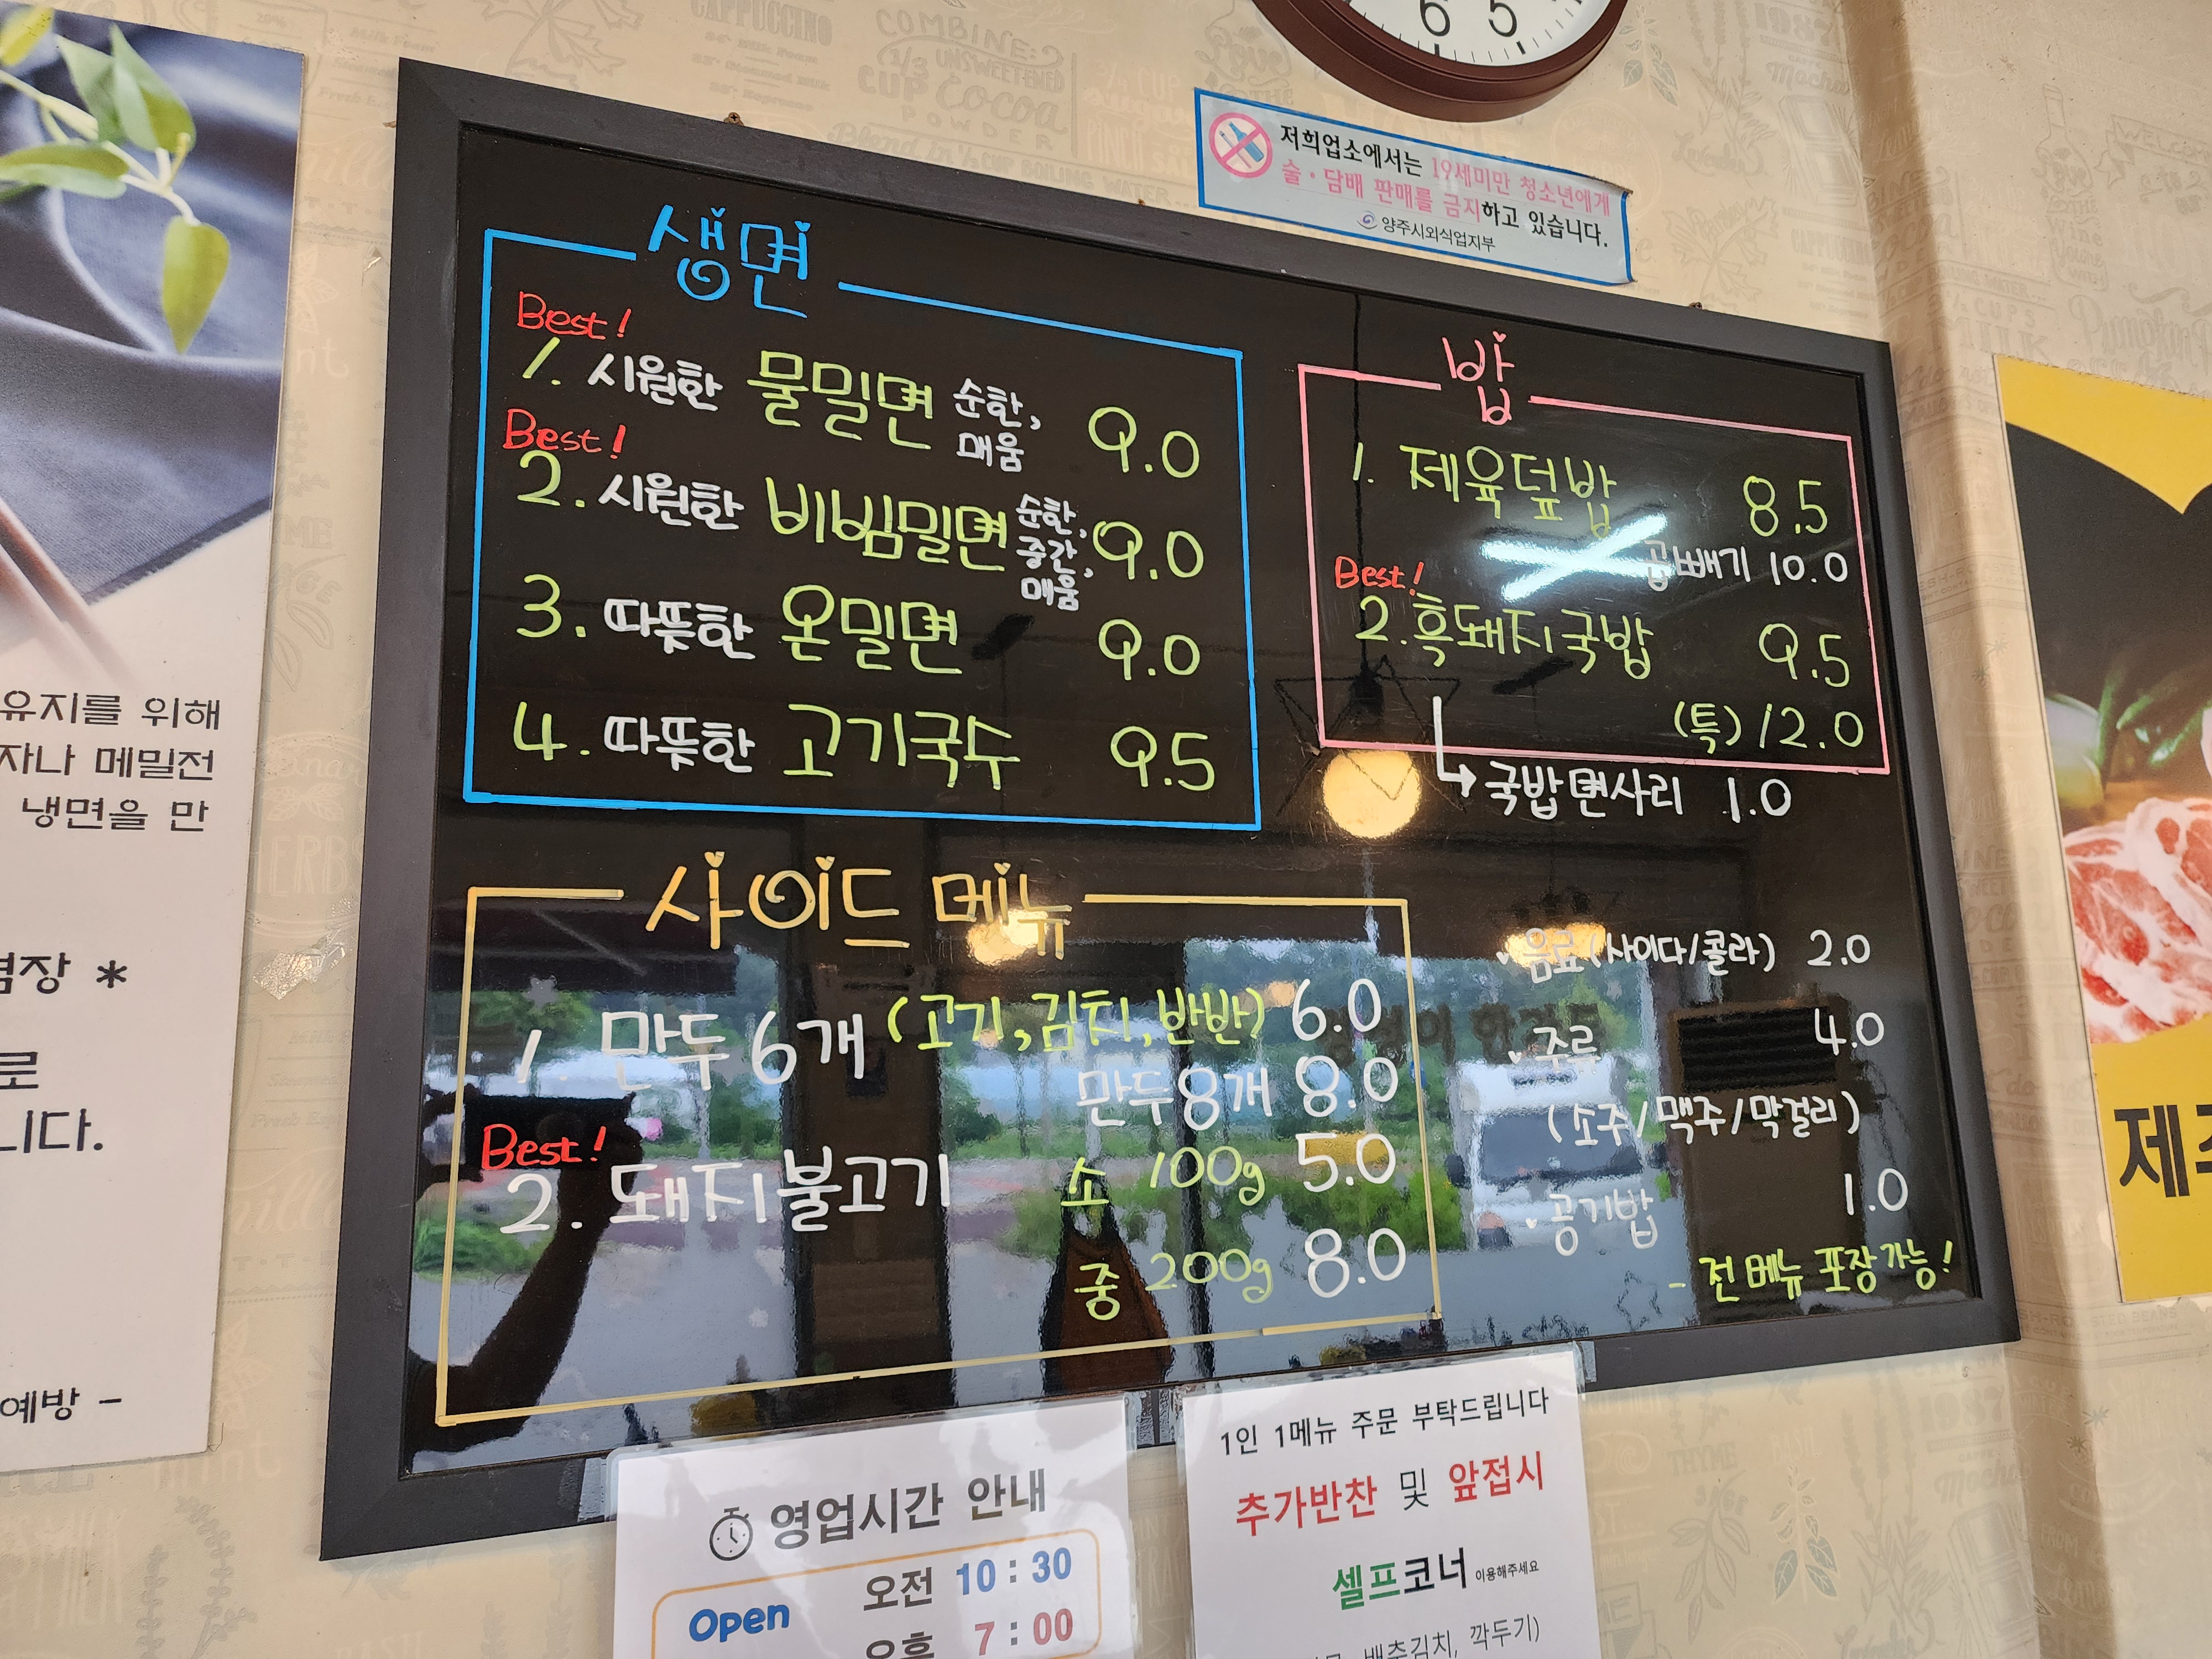 저희업소에서는 19세미만 청소년에게
술·담배 판매를 금지하고 있습니다.
양주시외식업지부
6 5
생면
Best!
1. 시원한 물밀면 순한, 매움 9.0
Best!
2. 시원한 비빔밀면 순한, 중간, 매움 9.0
3. 따뜻한 온밀면 9.0
4. 따뜻한 고기국수 9.5
밥
1. 제육덮밥 8.5
곱빼기 10.0
Best!
2. 흑돼지국밥 9.5
(특) 12.0
국밥 면사리 1.0
사이드 메뉴
1. 만두 6개 (고기, 김치, 반반) 6.0
만두 8개 8.0
Best!
2. 돼지불고기 소 100g 5.0
중 200g 8.0
음료 (사이다/콜라) 2.0
주류 4.0
(소주/맥주/막걸리)
공기밥 1.0
- 전메뉴 포장가능!
영업시간 안내
Open 오전 10:30
오후 7:00
1인 1메뉴 주문 부탁드립니다
추가반찬 및 앞접시
셀프코너 이용해주세요
배추김치, 깍두기)
유지를 위해
자나 메밀전
냉면을 만
장 *
로
니다.
예방 -
제주